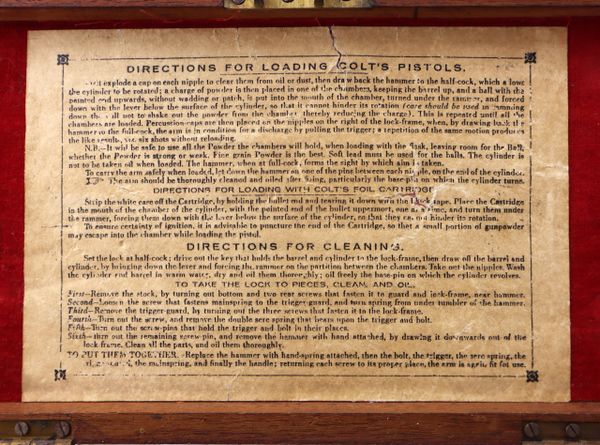 DIRECTIONS FOR LOADING COLT'S PISTOLS.
explode a cap on each nipple to clear them from oil or dust, then draw back the hammer to the half-cock, which allows
the cylinder to be rotated; a charge of powder is then placed in one of the chambers, keeping the barrel up, and a ball with the
pointed end upwards, without wadding or patch, is put into the mouth of the chamber, turned under the rammer, and forced
down with the lever below the surface of the cylinder, so that it cannot hinder its rotation (care should be used in ramming
down the ball not to shake out the powder from the chamber thereby reducing the charge). This is repeated until all the
chambers are loaded. Percussion-caps are then placed on the nipples on the right of the lock-frame, when, by drawing back the
hammer to the full-cock, the arm is in condition for a discharge by pulling the trigger; a repetition of the same motion produces
the like results, six shots without reloading.
N.B.—It will be safe to use all the Powder the chambers will hold, when loading with the flask, leaving room for the Ball,
whether the Powder is strong or weak. Fine grain Powder is the best. Soft lead must be used for the balls. The cylinder is
not to be taken off when loaded. The hammer, when at full-cock, forms the sight by which aim is taken.
To carry the arm safely when loaded, let down the hammer on one of the pins between each nipple, on the end of the cylinder.
The arm should be thoroughly cleaned and oiled after firing, particularly the base-pin on which the cylinder turns.
DIRECTIONS FOR LOADING WITH COLT'S FOIL CARTRIDGE
Strip the white case off the Cartridge, by holding the bullet end and tearing it down with the black tape. Place the Cartridge
in the mouth of the chamber of the cylinder, with the pointed end of the bullet uppermost, one at a time, and turn them under
the rammer, forcing them down with the lever below the surface of the cylinder, so that they cannot hinder its rotation.
To ensure certainty of ignition, it is advisable to puncture the end of the Cartridge, so that a small portion of gunpowder
may escape into the chamber while loading the pistol.
DIRECTIONS FOR CLEANING.
Set the lock at half-cock; drive out the key that holds the barrel and cylinder to the lock-frame, then draw off the barrel and
cylinder, by bringing down the lever and forcing the rammer on the partition between the chambers. Take out the nipples. Wash
the cylinder and barrel in warm water, dry and oil them thoroughly; oil freely the base-pin on which the cylinder revolves.
TO TAKE THE LOCK TO PIECES, CLEAN, AND OIL.
First—Remove the stock, by turning out bottom and two rear screws that fasten it to guard and lock-frame, near hammer.
Second—Loosen the screw that fastens mainspring to the trigger-guard, and turn spring from under tumbler of the hammer.
Third—Remove the trigger-guard, by turning out the three screws that fasten it to the lock-frame.
Fourth—Turn out the screw, and remove the double sere spring that bears upon the trigger and bolt.
Fifth—Turn out the screw-pins that hold the trigger and bolt in their places.
Sixth—turn out the remaining screw-pin, and remove the hammer with hand attached, by drawing it downwards out of the
lock frame. Clean all the parts, and oil them thoroughly.
TO PUT THEM TOGETHER.—Replace the hammer with hand-spring attached, then the bolt, the trigger, the sere spring, the
guard, the mainspring, and finally the handle; returning each screw to its proper place, the arm is again fit for use.